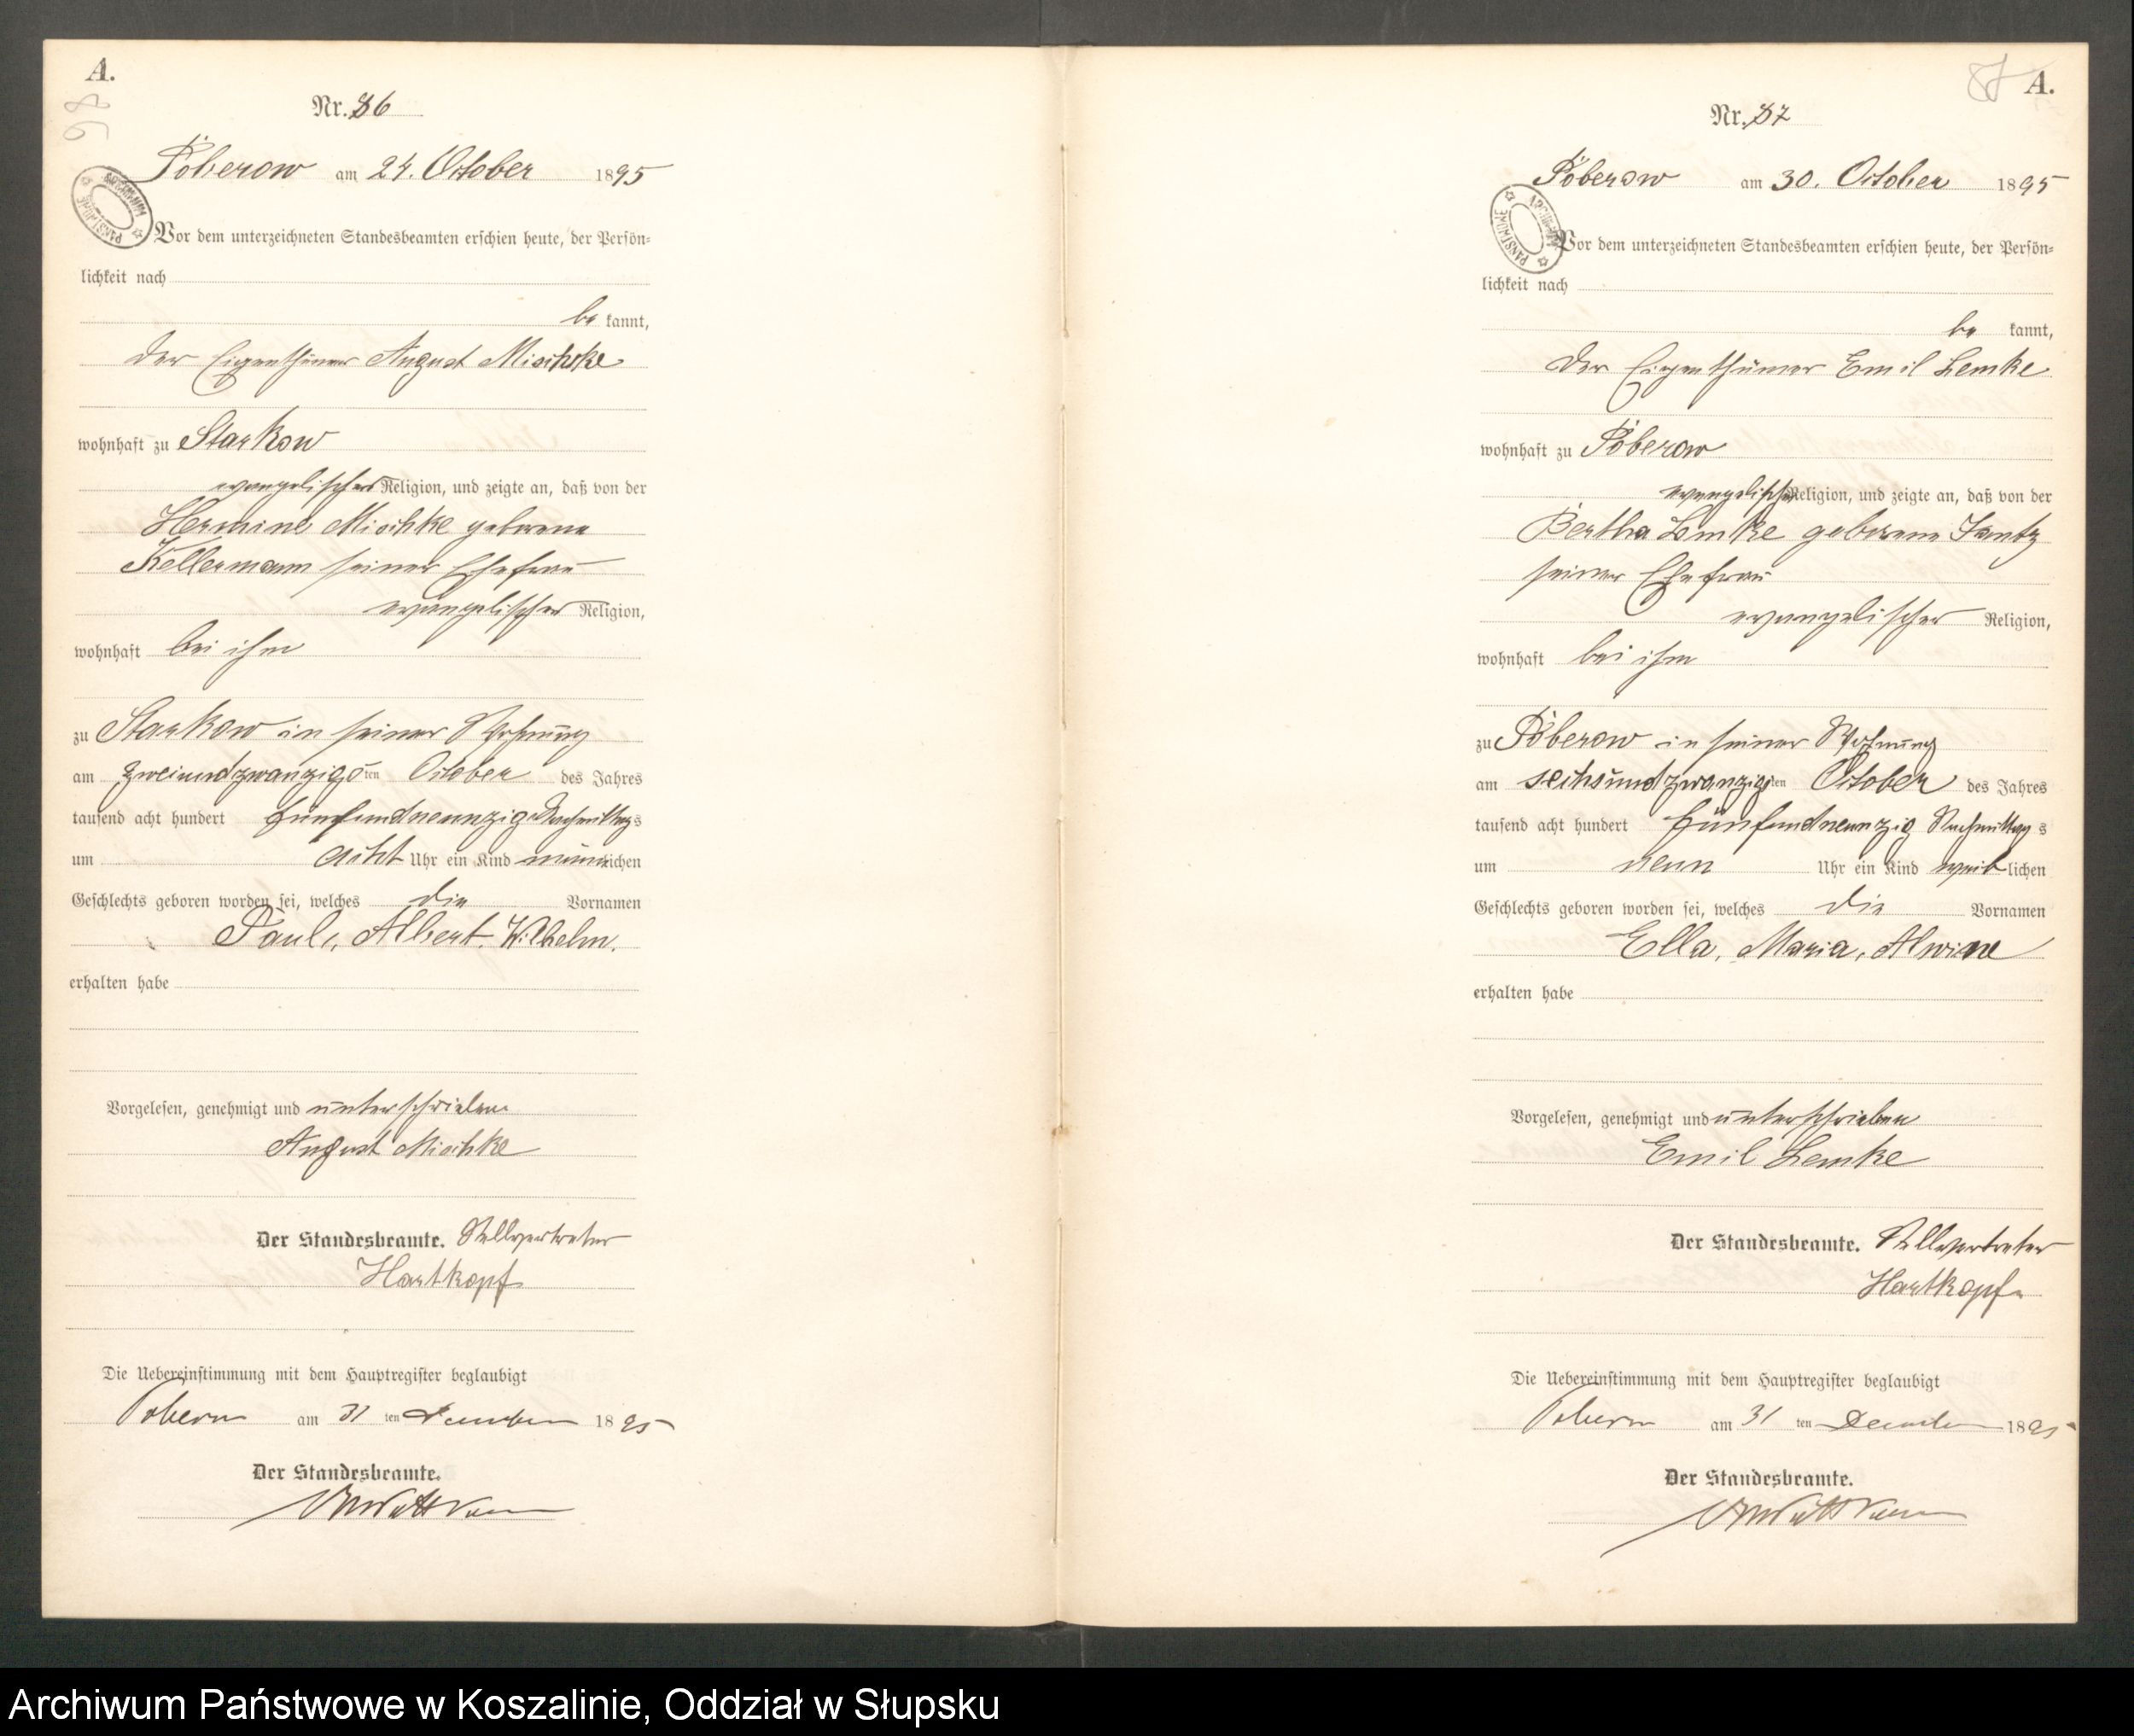 A.
86
Nr. 86
Poberow am 24. October 1895
ARCHIWUM PAŃSTWOWE
Vor dem unterzeichneten Standesbeamten erschien heute, der Persön-
lichkeit nach
be kannt,
der Eigenthümer August Mischke
wohnhaft zu Starkow
evangelischer Religion, und zeigte an, daß von der
Hermine Mischke geborene
Kellermann seiner Ehefrau
evangelischer Religion,
wohnhaft bei ihm
zu Starkow in seiner Wohnung
am zweiundzwanzigsten October des Jahres
tausend acht hundert fünfundneunzig Nachmittags
um acht Uhr ein Kind männlichen
Geschlechts geboren worden sei, welches die Vornamen
Paul, Albert, Wilhelm.
erhalten habe
Vorgelesen, genehmigt und unterschrieben
August Mischke
Der Standesbeamte. Stellvertreter
Hartkopf
Die Uebereinstimmung mit dem Hauptregister beglaubigt
Poberow am 31 ten December 1895
Der Standesbeamte.
A.
87
Nr. 87
Poberow am 30. October 1895
ARCHIWUM PAŃSTWOWE
Vor dem unterzeichneten Standesbeamten erschien heute, der Persön-
lichkeit nach
be kannt,
der Eigenthümer Emil Lemke
wohnhaft zu Poberow
evangelischer Religion, und zeigte an, daß von der
Bertha Lemke geborene Jantz
seiner Ehefrau
evangelischer Religion,
wohnhaft bei ihm
zu Poberow in seiner Wohnung
am sechsundzwanzigsten October des Jahres
tausend acht hundert fünfundneunzig Nachmittags
um neun Uhr ein Kind weiblichen
Geschlechts geboren worden sei, welches die Vornamen
Ella, Maria, Alwine
erhalten habe
Vorgelesen, genehmigt und unterschrieben
Emil Lemke
Der Standesbeamte. Stellvertreter
Hartkopf
Die Uebereinstimmung mit dem Hauptregister beglaubigt
Poberow am 31 ten December 1895
Der Standesbeamte.
Archiwum Państwowe w Koszalinie, Oddział w Słupsku